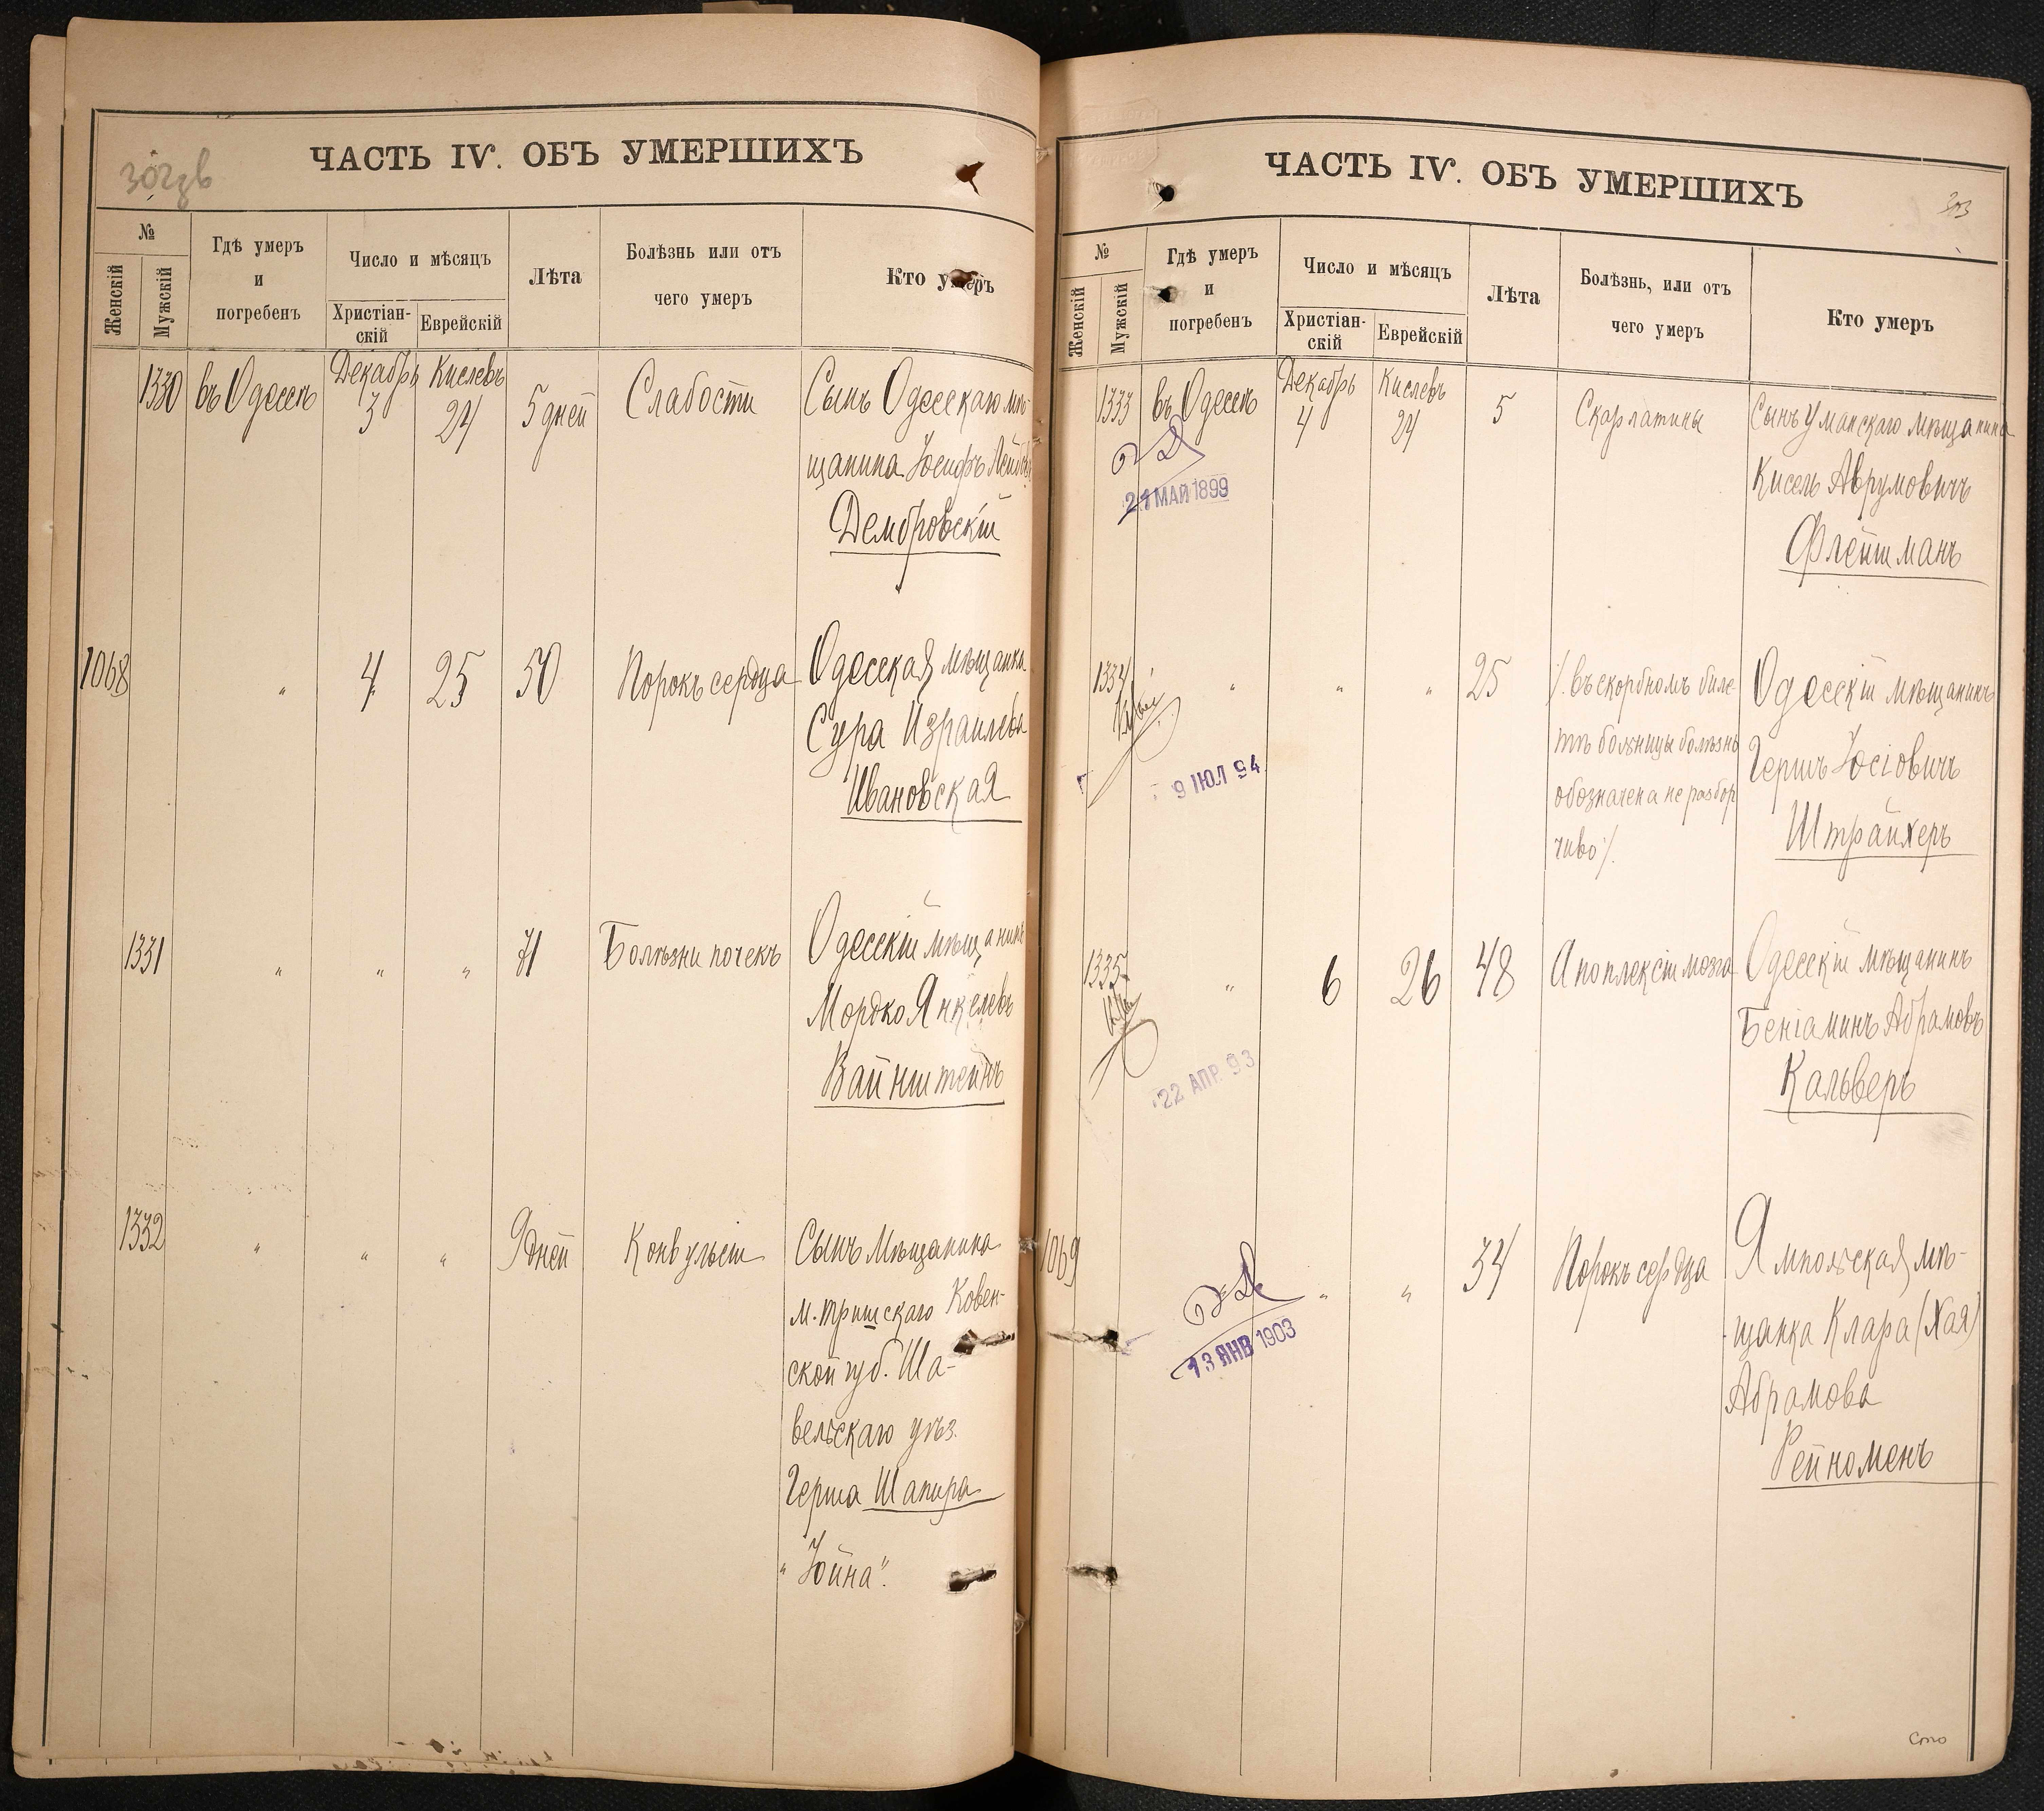 302зв
ЧАСТЬ IV. ОБЪ УМЕРШИХЪ
№
Женскій
Мужскій
Гдѣ умеръ
и
погребенъ
Число и мѣсяцъ
Христіан-
скій
Еврейскій
Лѣта
Болѣзнь или отъ
чего умеръ
Кто умеръ
1330 въ Одессѣ Декабрь 3 Кислевъ 24 5 дней Слабости Сынъ Одесскаго мѣ-
щанина Іосифъ
Дембровскій
1068 " 4 25 50 Порокъ сердца Одесская мѣщанка
Сура Израилева
Ивановская
1331 " " " 71 Болѣзни почекъ Одесскій мѣщанинъ
Мордко Янкелевъ
Вайнштейнъ
1332 " " " 9 дней Конвульсіи Сынъ Мѣщанина
м. Тришскаго Ковен-
ской губ. Ша-
вельскаго уѣз.
Герша Шапира
"Іойна".
ЧАСТЬ IV. ОБЪ УМЕРШИХЪ
303
№
Женскій
Мужскій
Гдѣ умеръ
и
погребенъ
Число и мѣсяцъ
Христіан-
скій
Еврейскій
Лѣта
Болѣзнь, или отъ
чего умеръ
Кто умеръ
1333 въ Одессѣ Декабрь 4 Кислевъ 24 5 Скарлатины Сынъ Уманскаго мѣщанина
Кисель Аврумовичъ
Флейшманъ
21 МАЙ 1899
1334 " " " 25 /. въ скорбномъ биле-
тѣ больницы болѣзнь
обозначена не разбор
чиво ./.
Одесскій мѣщанинъ
Гершъ Іосіовичъ
Штрайхеръ
9 ІЮЛ 94
1335 " 6 26 48 Апоплексіи мозга Одесскій мѣщанинъ
Беніаминъ Абрамовъ
Кальверъ
22 АПР. 93
1069 " " 34 Порокъ сердца Ямпольская мѣ-
щанка Клара (Хая)
Абрамова
Рейноменъ
13 ЯНВ 1903
Сто